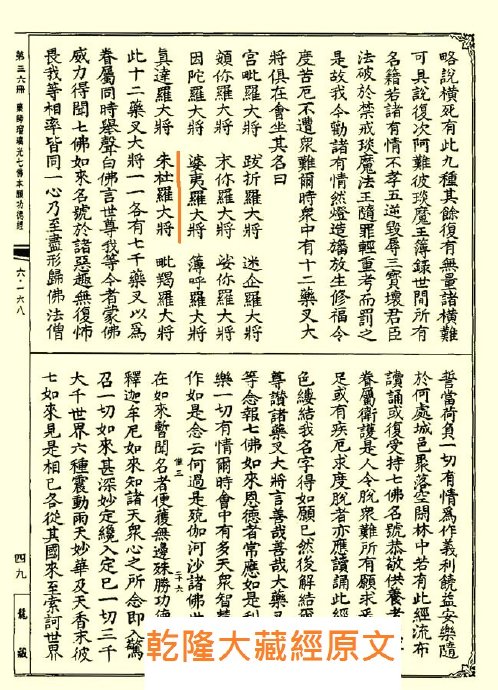 略說橫死有此九種其餘復有無量諸橫難
可具說復次阿難彼琰魔王簿錄世間所有
名籍若諸有情不孝五逆毀辱三寶壞君臣
法破於禁戒琰魔法王隨罪輕重考而罰之
是故我今勸諸有情然燈造旛放生修福令
度苦厄不遭衆難爾時衆中有十二藥叉大
將俱在會坐其名曰
宮毗羅大將 跋折羅大將 迷企羅大將
頞你羅大將 末你羅大將 娑你羅大將
因陀羅大將 婆夷羅大將 薄呼羅大將
真達羅大將 朱杜羅大將 毗羯羅大將
此十二藥叉大將一一各有七千藥叉以為
眷屬同時舉聲白佛言世尊我等今者蒙佛
威力得聞七佛如來名號於諸惡趣無復怖
畏我等相率皆同一心乃至盡形歸佛法僧
誓當荷負一切有情為作義利饒益安樂隨
於何處城邑聚落空閑林中若有此經流布
讀誦或復受持七佛名號恭敬供養者
眷屬衛護是人令脫衆難所有願求悉
足或有疾厄求度脫者亦應讀誦此經
色縷結我名字得如願已然後解結
尊讚諸藥叉大將言善哉善哉大藥叉
等念報七佛如來恩德者常應如是利
樂一切有情爾時會中有多天衆智慧
作如是念云何過是殑伽河沙諸佛世
在如來暫聞名者便獲無邊殊勝功德
釋迦牟尼如來知諸天衆心之所念即入驚
召一切如來甚深妙定纔入定已一切三千
大千世界六種震動雨天妙華及天香末彼
七如來見是相已各從其國來至索訶世界
第三六冊 藥師瑠璃光七佛本願功德經
六·一六八
四九
龍藏
乾隆大藏經原文